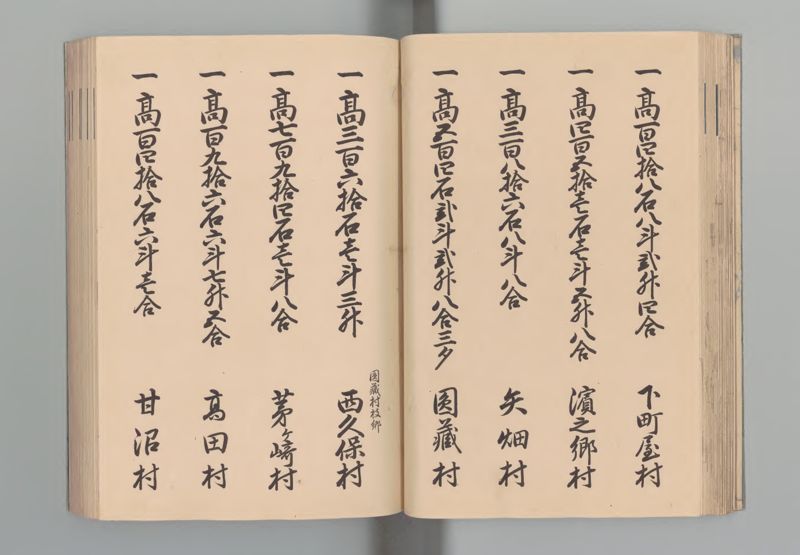 一 高百四拾八石八斗弐升四合 下町屋村
一 高四百五拾壱石壱斗五升八合 濱之郷村
一 高三百八拾六石八斗八合 矢畑村
一 高五百四石弐斗弐升八合三夕 圓藏村
圓藏村枝郷
一 高三百六拾石壱斗三升 西久保村
一 高七百九拾四石壱斗八合 茅ヶ崎村
一 高百九拾六石六斗七升五合 高田村
一 高百四拾八石六斗壱合 甘沼村